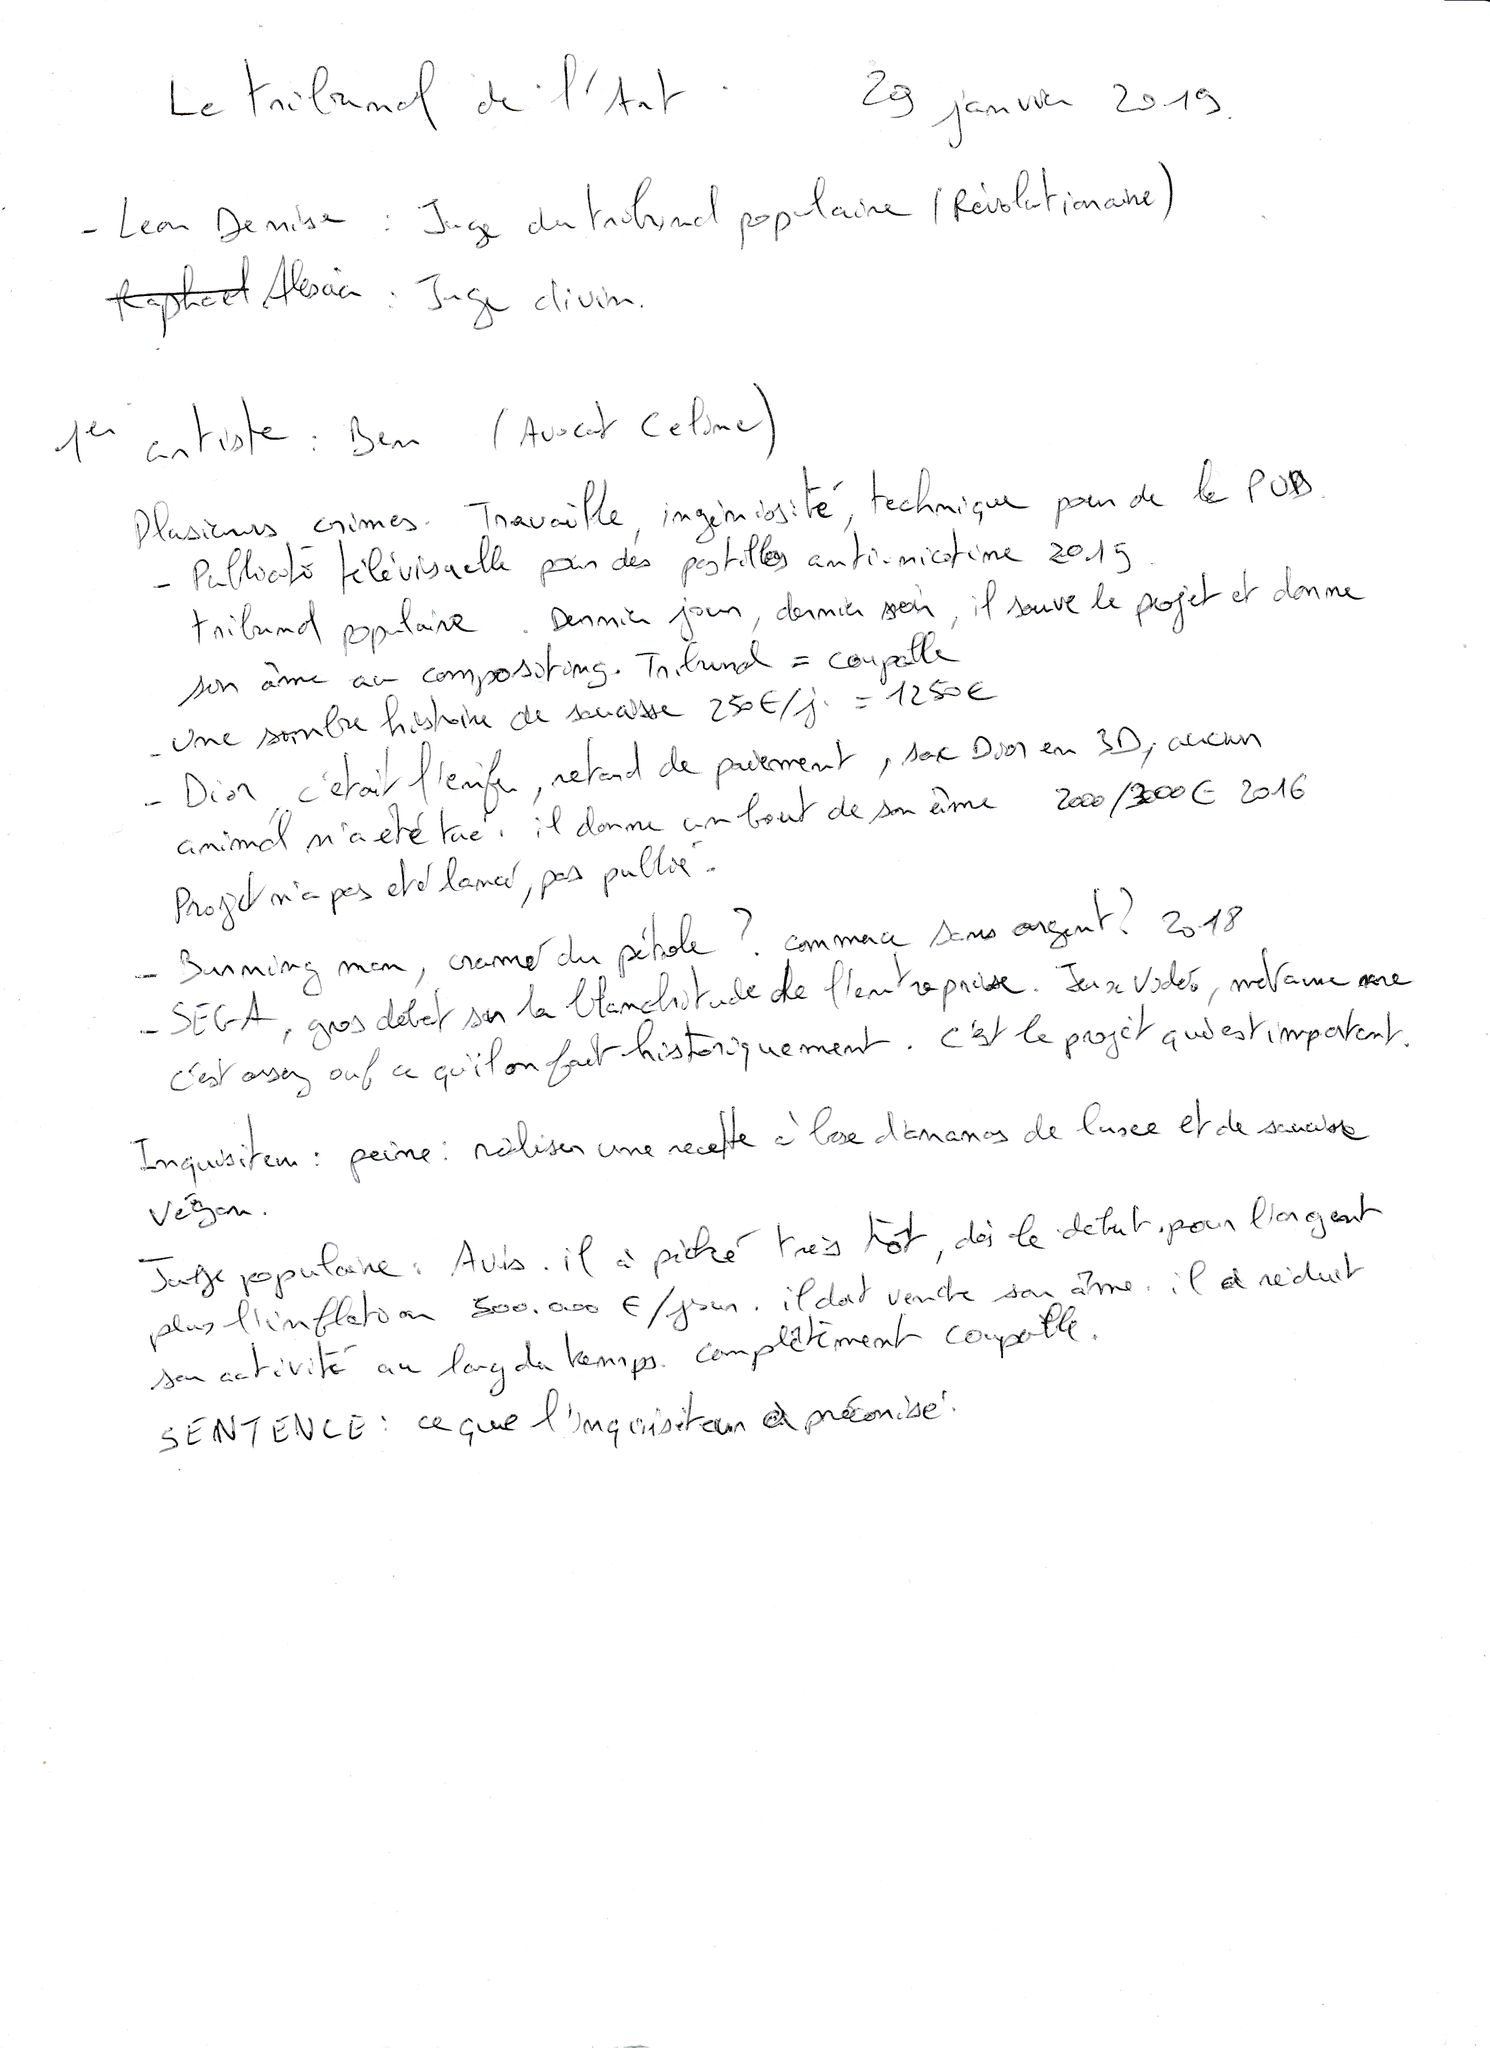 Le tribunal de l'Art 29 janvier 2019.
- Leon Denise : Juge du tribunal populaire (Révolutionaire)
Raphael Alexia : Juge divin.
1er artiste : Ben (Avocat Celine)
Plusieurs crimes. Travaille, ingéniosité, technique pour de la PUB.
- Publicité télévisuelle pour des pastilles anti-nicotine 2015.
tribunal populaire. Dernier jour, dernier soir, il sauve le projet et donne
son âme au compositing. Tribunal = coupable
- Une sombre histoire de saucisse 250€/j. = 1250€
- Dior, c'était l'enfer, retard de paiement, sac Dior en 3D, aucun
animal n'a été tué. il donne un bout de son âme 2000/3000€ 2016
Projet n'a pas été lancé, pas publié.
- Burning man, cramé du pétrole ? commerce sans argent? 2018
- SEGA, gros débat sur la blanchitude de l'entreprise. Jeux Vidéo,
c'est assez ouf ce qu'il on fait historiquement. C'est le projet qui est important.
Inquisiteur : peine : réaliser une recette à base d'ananas de luxe et de saucisse
végan.
Juge populaire : Avis. il à très tôt, dès le début. pour l'argent
plus l'inflation 500.000 €/jour. il doit vendre son âme. il a réduit
son activité au long du temps. complètement coupable.
SENTENCE : ce que l'inquisiteur a préconisé.